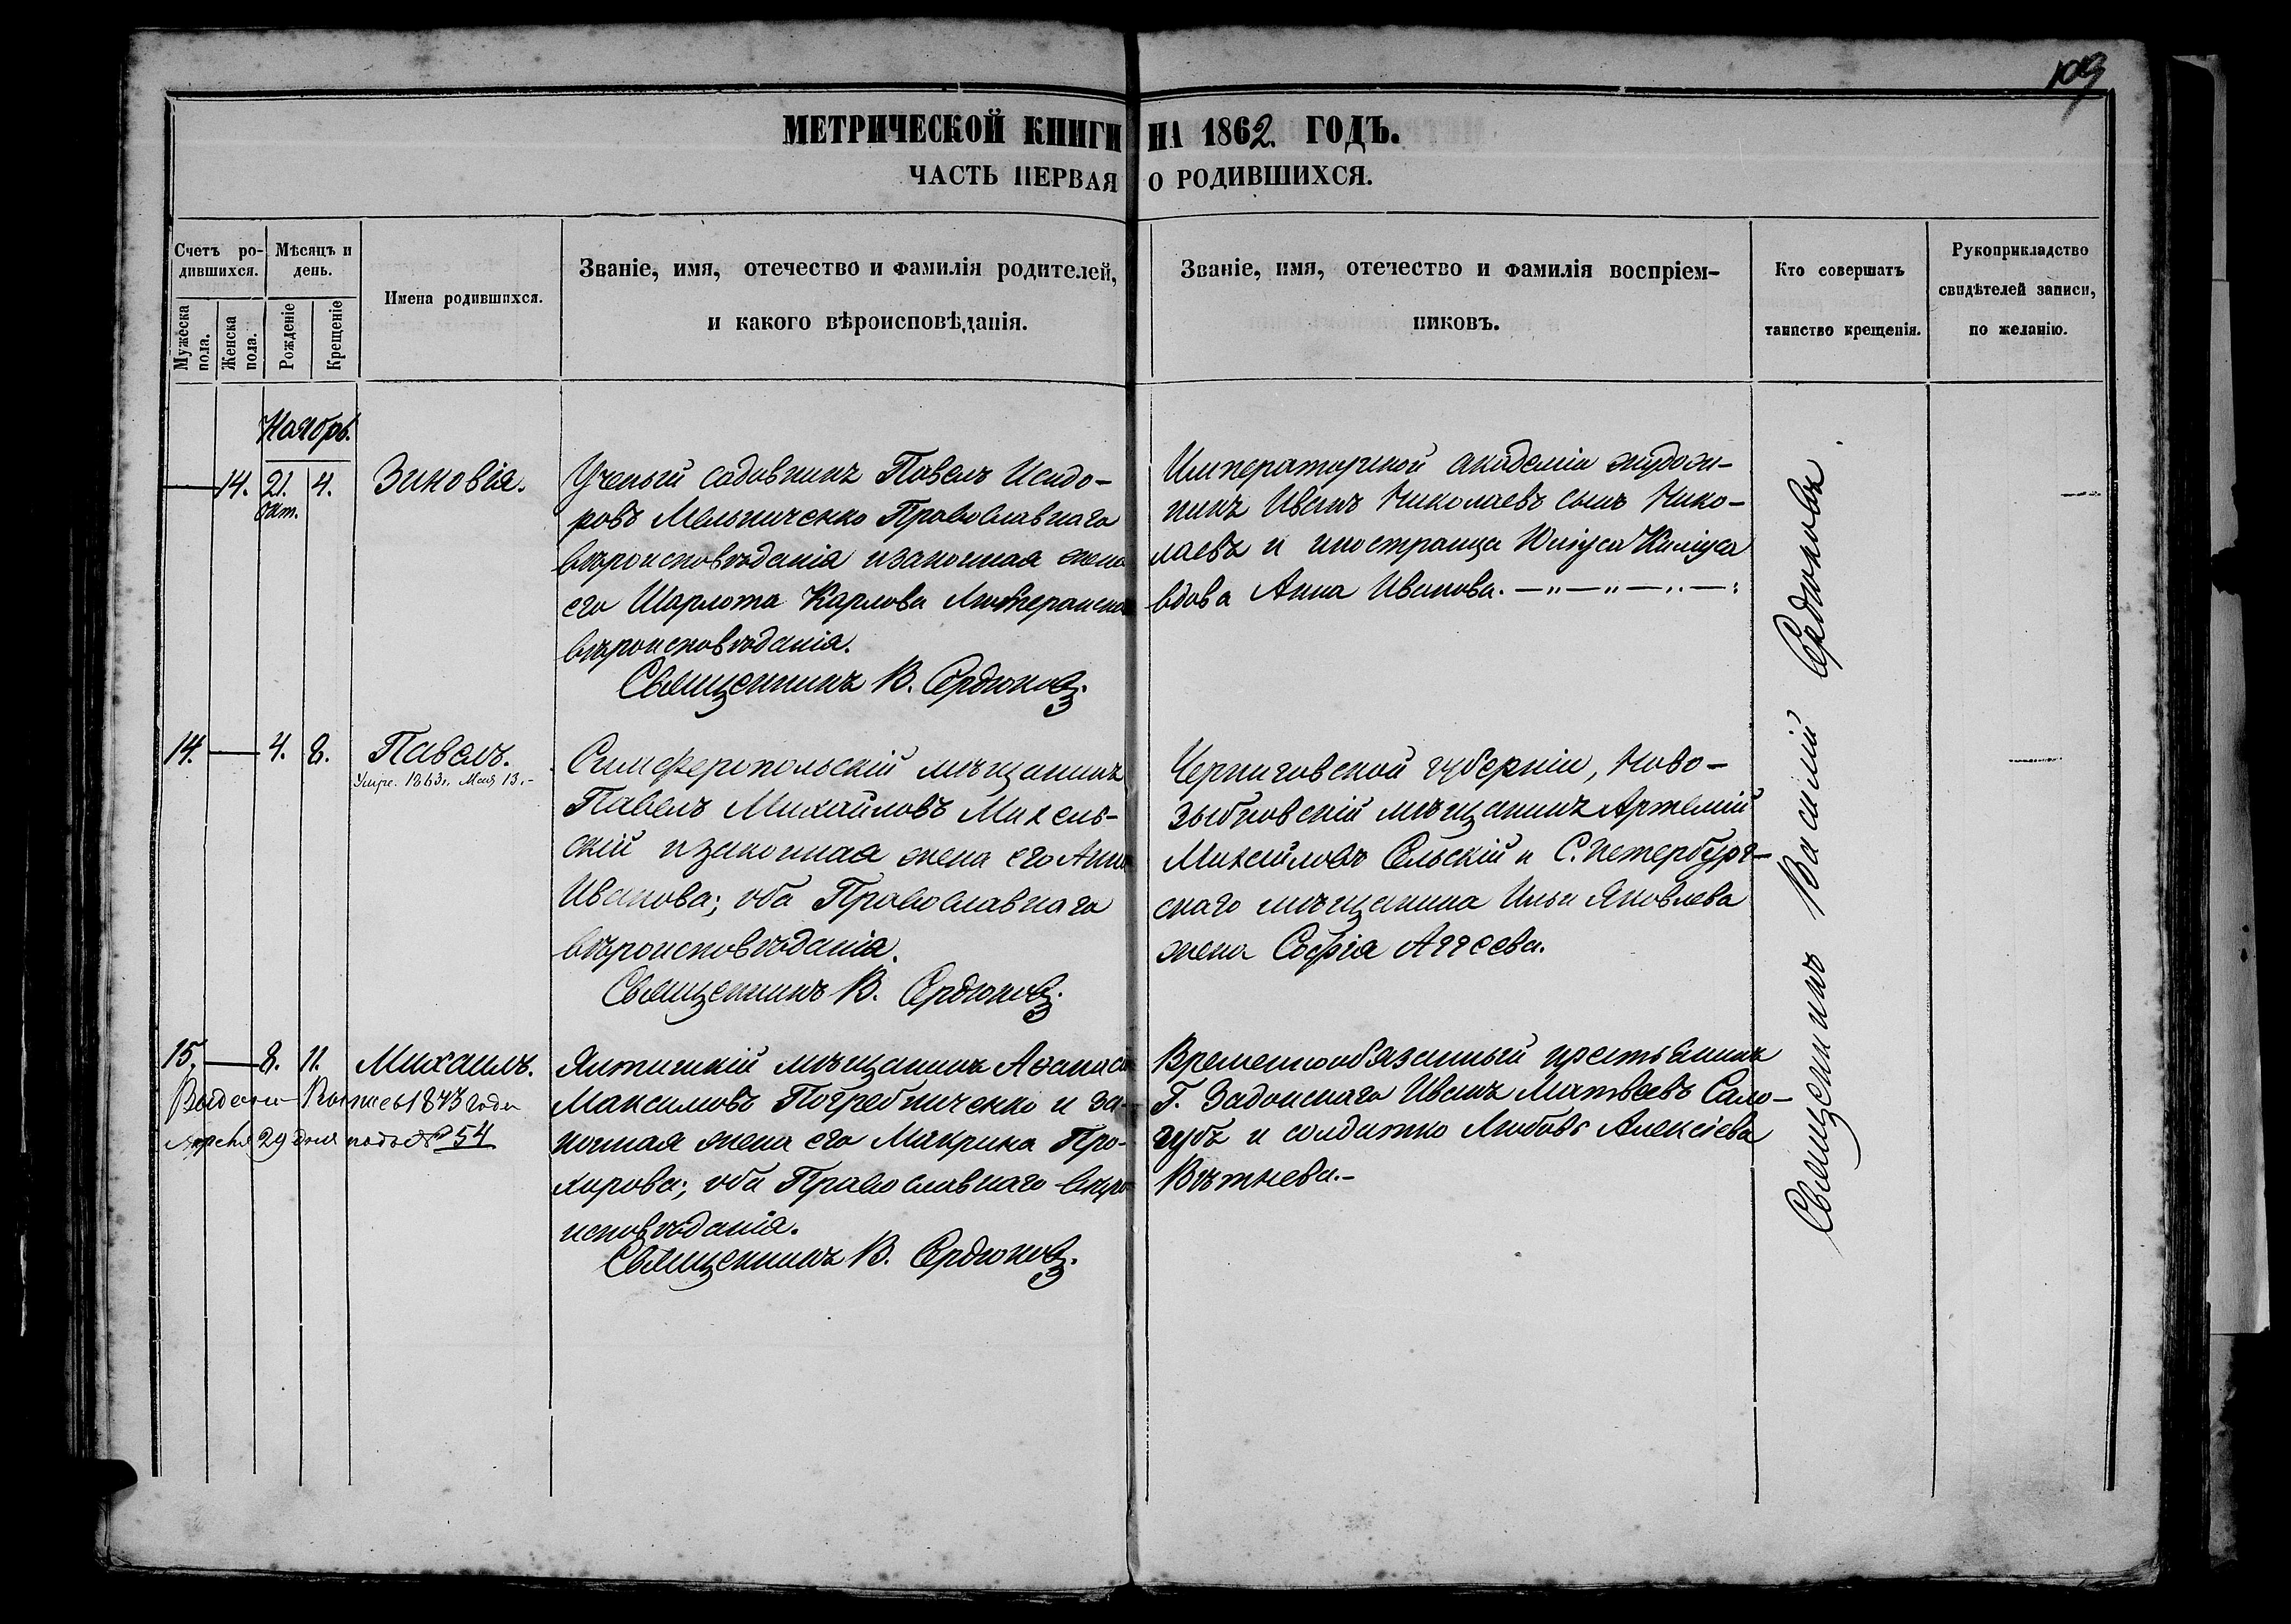 109
МЕТРИЧЕСКОЙ КНИГИ НА 1862. ГОДЪ.
ЧАСТЬ ПЕРВАЯ О РОДИВШИХСЯ.
Счетъ ро-
дившихся.
Мужеска
пола.
Женска
пола.
Мѣсяцъ и
день.
Рожденіе
Крещеніе
Имена родившихся.
Званіе, имя, отечество и фамилія родителей,
и какого вѣроисповѣданія.
Званіе, имя, отечество и фамилія воспріем-
никовъ.
Кто совершатъ
таинство крещенія.
Рукоприкладство
свидѣтелей записи,
по желанію.
Ноябрь.
14. 21. 4.
Окт.
Зиновія.
Ученый садовникъ Павелъ Исидо-
ровъ Мельниченко Православнаго
вѣроисповѣданія и законная жена
его Шарлота Карлова Лютеранска
вѣроисповѣданія.
Священникъ В. Сердюковъ.
Императорской академіи художн-
никъ Иванъ Николаевъ сынъ Нико-
лаевъ и иностранца
вдова Анна Иванова.
14. 4. 8.
Павелъ.
Умре. 1863 г. Мая 13.
Симферопольскій мѣщанинъ
Павелъ Михайловъ Михель-
скій и законная жена его Анна
Иванова; оба Православнаго
вѣроисповѣданія.
Священникъ В. Сердюковъ.
Черниговской губерніи, Ново-
зыбковскій мѣщанинъ Артемій
Михайловъ Сельскій и С.петербург-
скаго мѣщанина Ильи Яковлева
жена Софія Аггеева.
15. 8. 11.
Михаилъ.
Выдана 1873 года
Апреля 29 дня подъ № 54
Ялтинскій мѣщанинъ Аѳанасій
Максимовъ Погребниченко и за-
конная жена его Макрина Про-
хорова; оба Православнаго вѣро
исповѣданія.
Священникъ В. Сердюковъ.
Временнообязанный крестьянинъ
Г. Задонскаго Иванъ Матвеевъ Сало-
губъ и солдатка Любовь Алексіева
Вѣтнева.
Священникъ Василій Сердюковъ